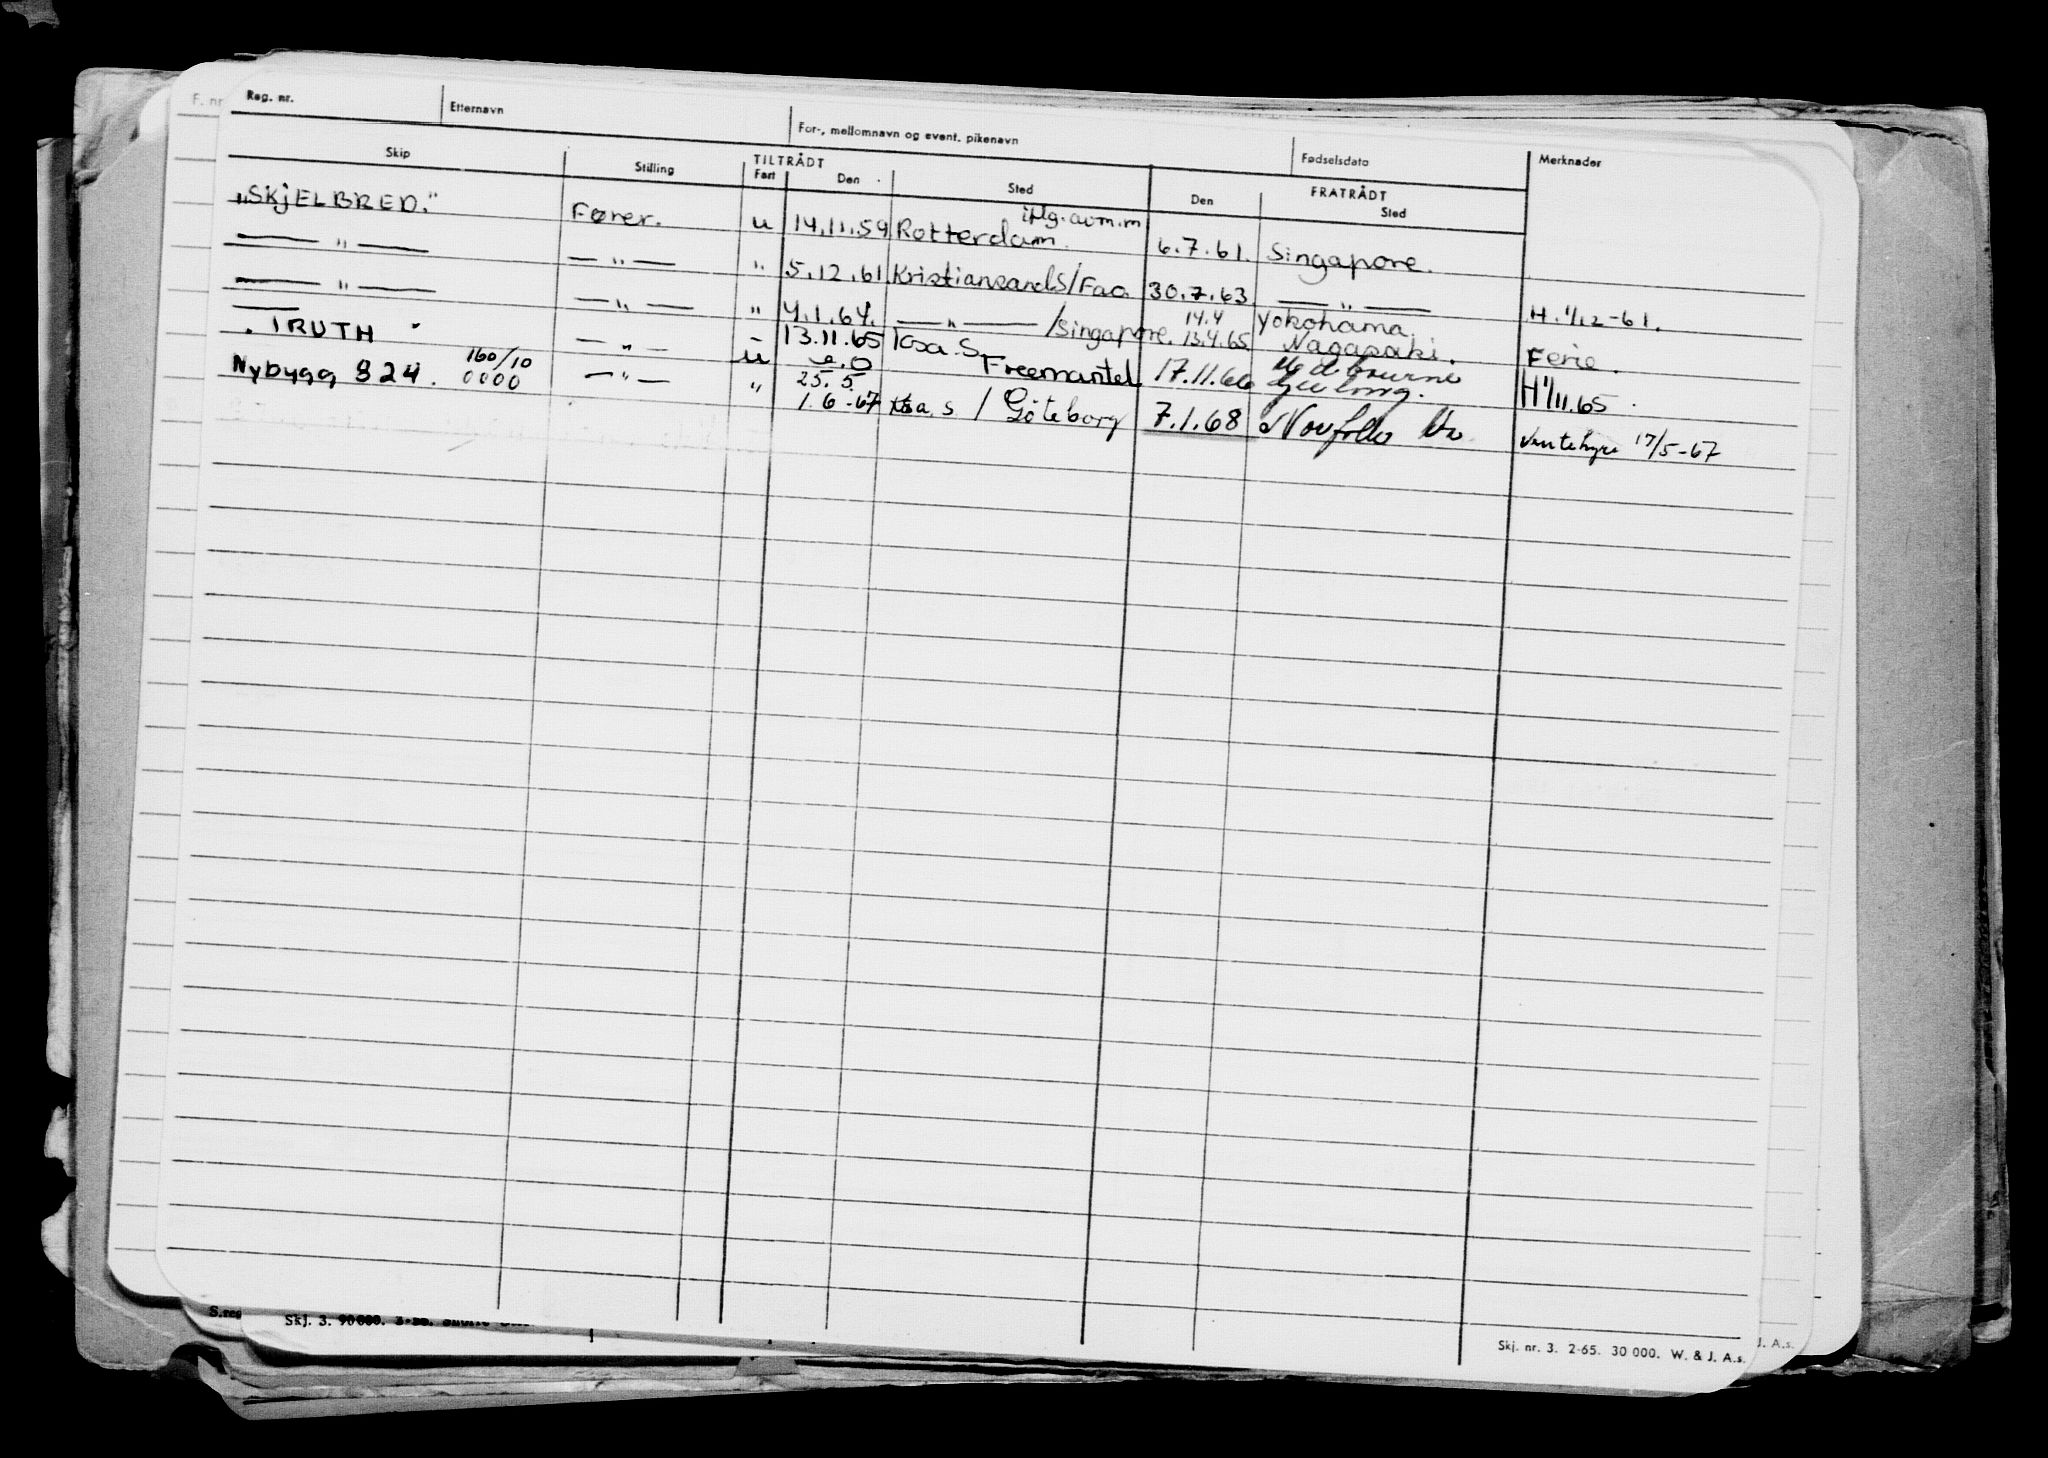 F. nr
Reg. nr. Etternavn For-, mellomnavn og event. pikenavn Fødselsdato Merknader
Skip Stilling TILTRÅDT FRATRÅDT
Fart Den Sted Den Sted
"SKJELBRED." Fører. u 14.11.59 Rotterdam. iflg. avm.m 6.7.61. Singapore.
— " — — " — " 5.12.61 Kristiansand S/Fao 30.7.63 — " — H. 1/12-61.
— " — — " — " 4.1.64. — " — /Singapore. 14.4 13.4.65 Yokohama. Nagasaki. Ferie.
"TRUTH" — " — u 13.11.65 Krsa. S. Freemantel 17.11.66 Melbourne Geelong. H 1/11.65.
Nybygg 824. 160/10 0000 — " — " 25.5 1.6-67 Krsa. S / Göteborg 7.1.68 Norfolk Va. Ventehyre 17/5-67
S.reg
Skj. 3. 90 000.
Skj. nr. 3. 2-65. 30 000. W. & J. A.s.
J. A.s.